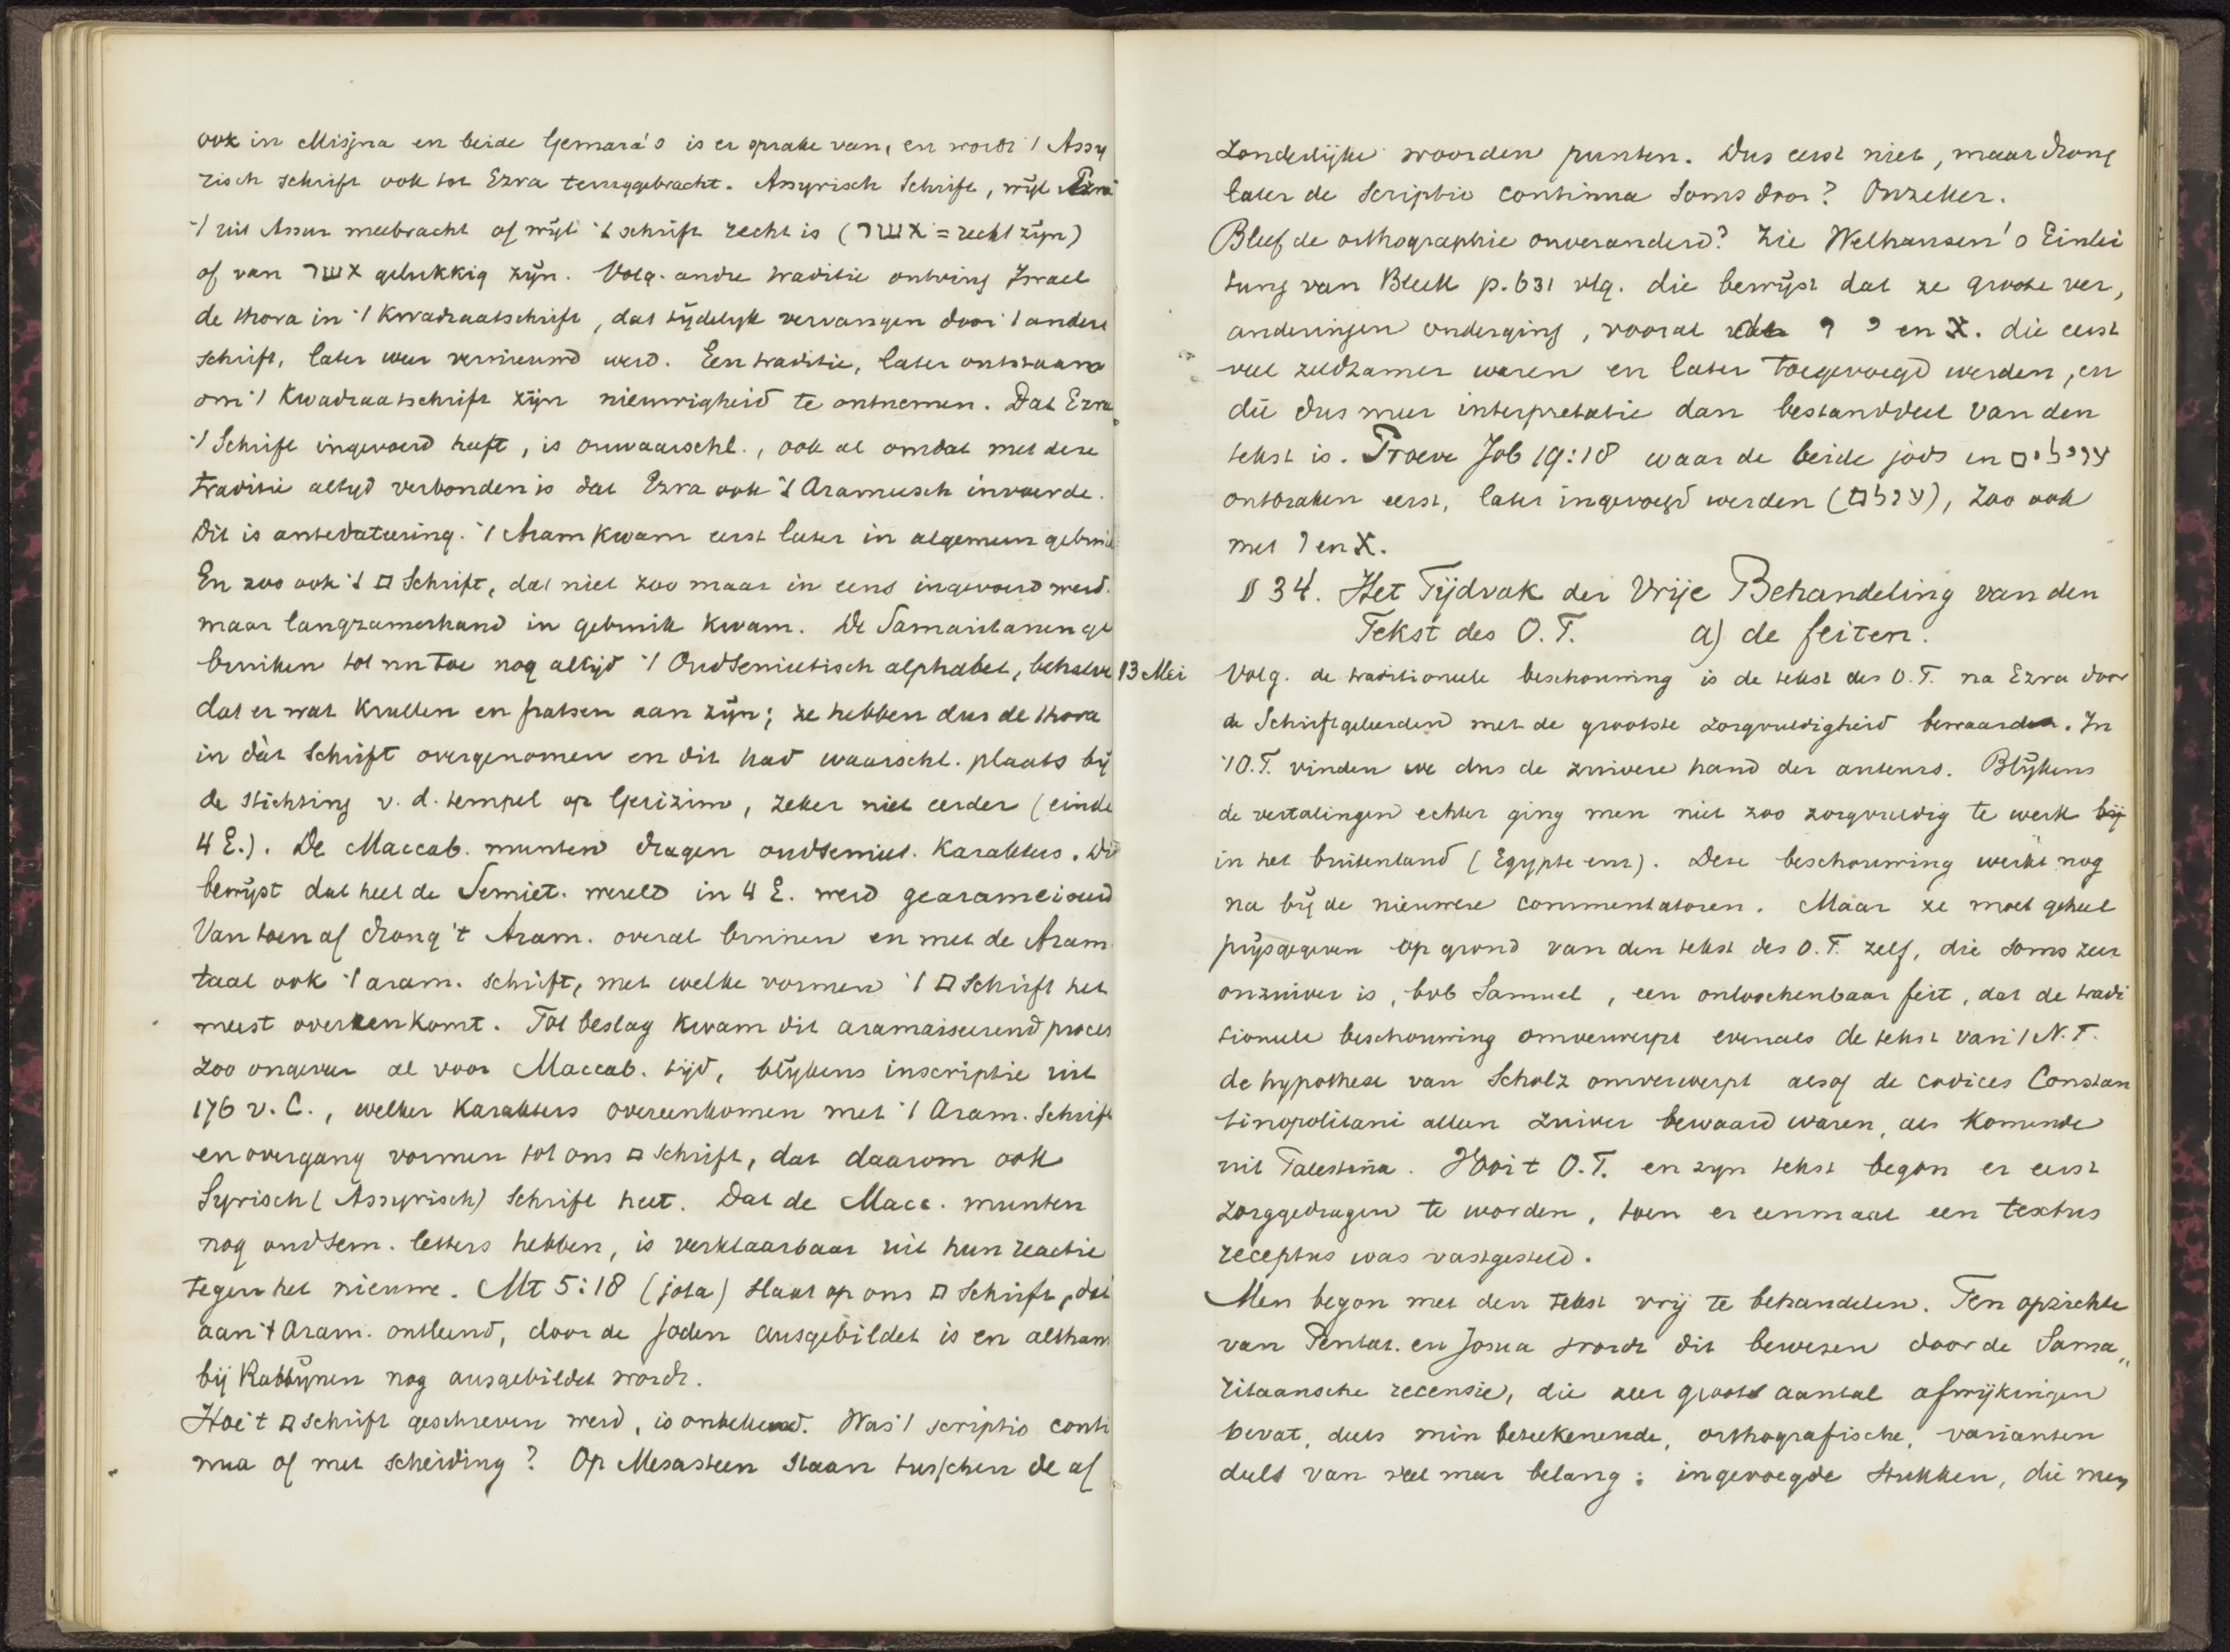 ook in Misjna en beide Gemara's is er sprake van, en wordt 't Assy
risch schrift ook tot Ezra teruggebracht. Assyrisch Schrift, wijl Ezra
't uit Assur meebracht of wijl 't schrift recht is (אשר = recht zijn)
of van אשר gelukkig zijn. Volg. andre traditie ontving Israel
de thora in 't Kwadraatschrift, dat tijdelijk vervangen door 't andere
schrift, later weer vernieuwd werd. Een traditie, later ontstaan
om 't Kwadraatschrift zijn nieuwigheid te ontnemen. Dat Ezra
't Schrift ingevoerd heeft, is onwaarschl., ook al omdat met deze
traditie altijd verbonden is dat Ezra ook 't Arameesch invoerde.
Dit is antedateering. 't Aram kwam eerst later in algemeen gebruik
En zoo ook 't □ Schrift, dat niet zoo maar in eens ingevoerd werd.
maar langzamerhand in gebruik kwam. De Samaritanen ge
bruiken tot nu toe nog altijd 't Oudsemietisch alphabet, behalve
dat er wat krullen en fratsen aan zijn; ze hebben dus de thora
in dàt Schrift overgenomen en dit had waarschl. plaats bij
de stichting v. d. tempel op Gerizim, zeker niet eerder (einde
4 E.). De Maccab. munten dragen oudsemiet. karakters. Dit
bewijst dat heel de Semiet. wereld in 4 E. werd gearameiseerd
Van toen af drong 't Aram. overal binnen en met de Aram
taal ook 't aram. schrift, met welke vormen 't □ Schrift het
meest overeenkomt. Tot beslag kwam dit aramaiseerend proces
zoo ongeveer al voor Maccab. tijd, blijkens inscriptie uit
176 v. C., welker karakters overeenkomen met 't Aram. Schrift
en overgang vormen tot ons □ schrift, dat daarom ook
Syrisch (Assyrisch) Schrift heet. Dat de Macc. munten
nog oudsem. letters hebben, is verklaarbaar uit hun reactie
tegen het nieuwe. Mt 5:18 (jota) slaat op ons □ Schrift, dat
aan 't Aram. ontleend, door de joden ausgebildet is en althans
bij Rabbijnen nog ausgebildet wordt.
Hoe 't □ schrift geschreven werd, is onbekend. Was 't scriptio conti
nua of met scheiding? Op Mesasteen staan tusschen de af
zonderlijke woorden punten. Dus eerst niet, maar drong
later de Scriptio continua soms door? Onzeker.
Bleef de orthographie onveranderd? Zie Welhausen's Einlei
tung van Bleek p. 631 vlg. die bewijst dat ze groote ver,
anderingen onderging, vooral ו י en א. die eerst
veel zeldzamer waren en later toegevoegd werden, en
die dus meer interpretatie dan bestanddeel van den
tekst is. Proeve Job 19:18 waar de beide jods in עוילים
ontbraken eerst, later ingevoegd werden (עולם), zoo ook
met ו en א.
§ 34. Het Tijdvak der Vrije Behandeling van den
Tekst des O. T. a) de feiten.
13 Mei Volg. de traditioneele beschouwing is de tekst des O. T. na Ezra door
de Schriftgeleerden met de grootste zorgvuldigheid bewaard. In
't O. T. vinden we dus de zuivere hand der auteurs. Blijkens
de vertalingen echter ging men niet zoo zorgvuldig te werk bij
in het buitenland (Egypte enz). Deze beschouwing werkt nog
na bij de nieuwere commentatoren. Maar ze moet geheel
prijsgegeven op grond van den tekst des O. T. zelf, die soms zeer
onzuiver is, bvb Samuel, een onloochenbaar feit, dat de tradi
tioneele beschouwing omverwerpt evenals de tekst van 't N. T.
de hypothese van Scholz omverwerpt alsof de codices Constan
tinopolitani alleen zuiver bewaard waren, als komende
uit Palestina. Voor 't O. T. en zijn tekst begon er eerst
zorggedragen te worden, toen er eenmaal een textus
receptus was vastgesteld.
Men begon met den tekst vrij te behandelen. Ten opzichte
van Pentat. en Josua wordt dit bewezen door de Sama„
ritaansche recensie, die zeer groot aantal afwijkingen
bevat, deels min beteekenende, orthografische, varianten
deels van veel meer belang: ingevoegde stukken, die men